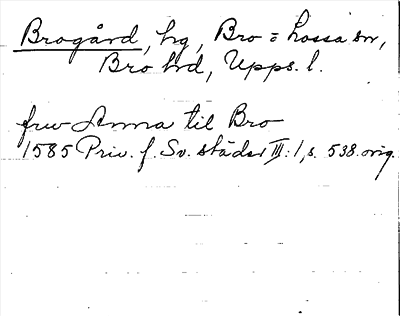 Brogård, hg, Bro = Lossa sn,
Bro hd, Upps. l.
fru Anna til Bro
1585 Priv. f. Sv. städer III:1, s. 538. orig.